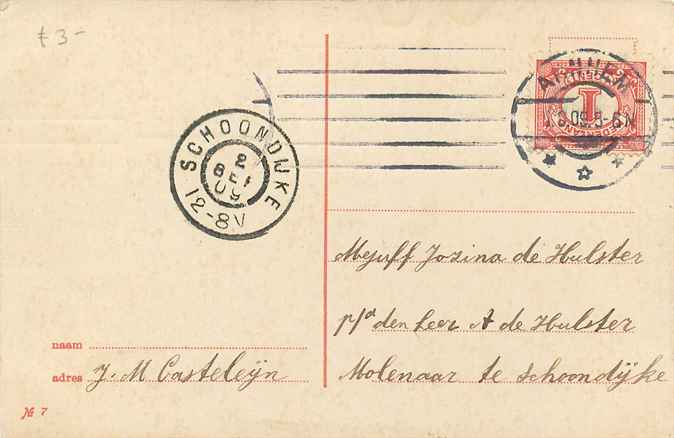 £ 3-
ARNHEM
1
.09.5-6N
SCHOONDIJKE
2
SEP
09
12-8V
Mejuff Jozina de Hulster
p/a den heer A de Hulster
Molenaar te Schoondijke
naam
adres J. M Casteleijn
№ 7